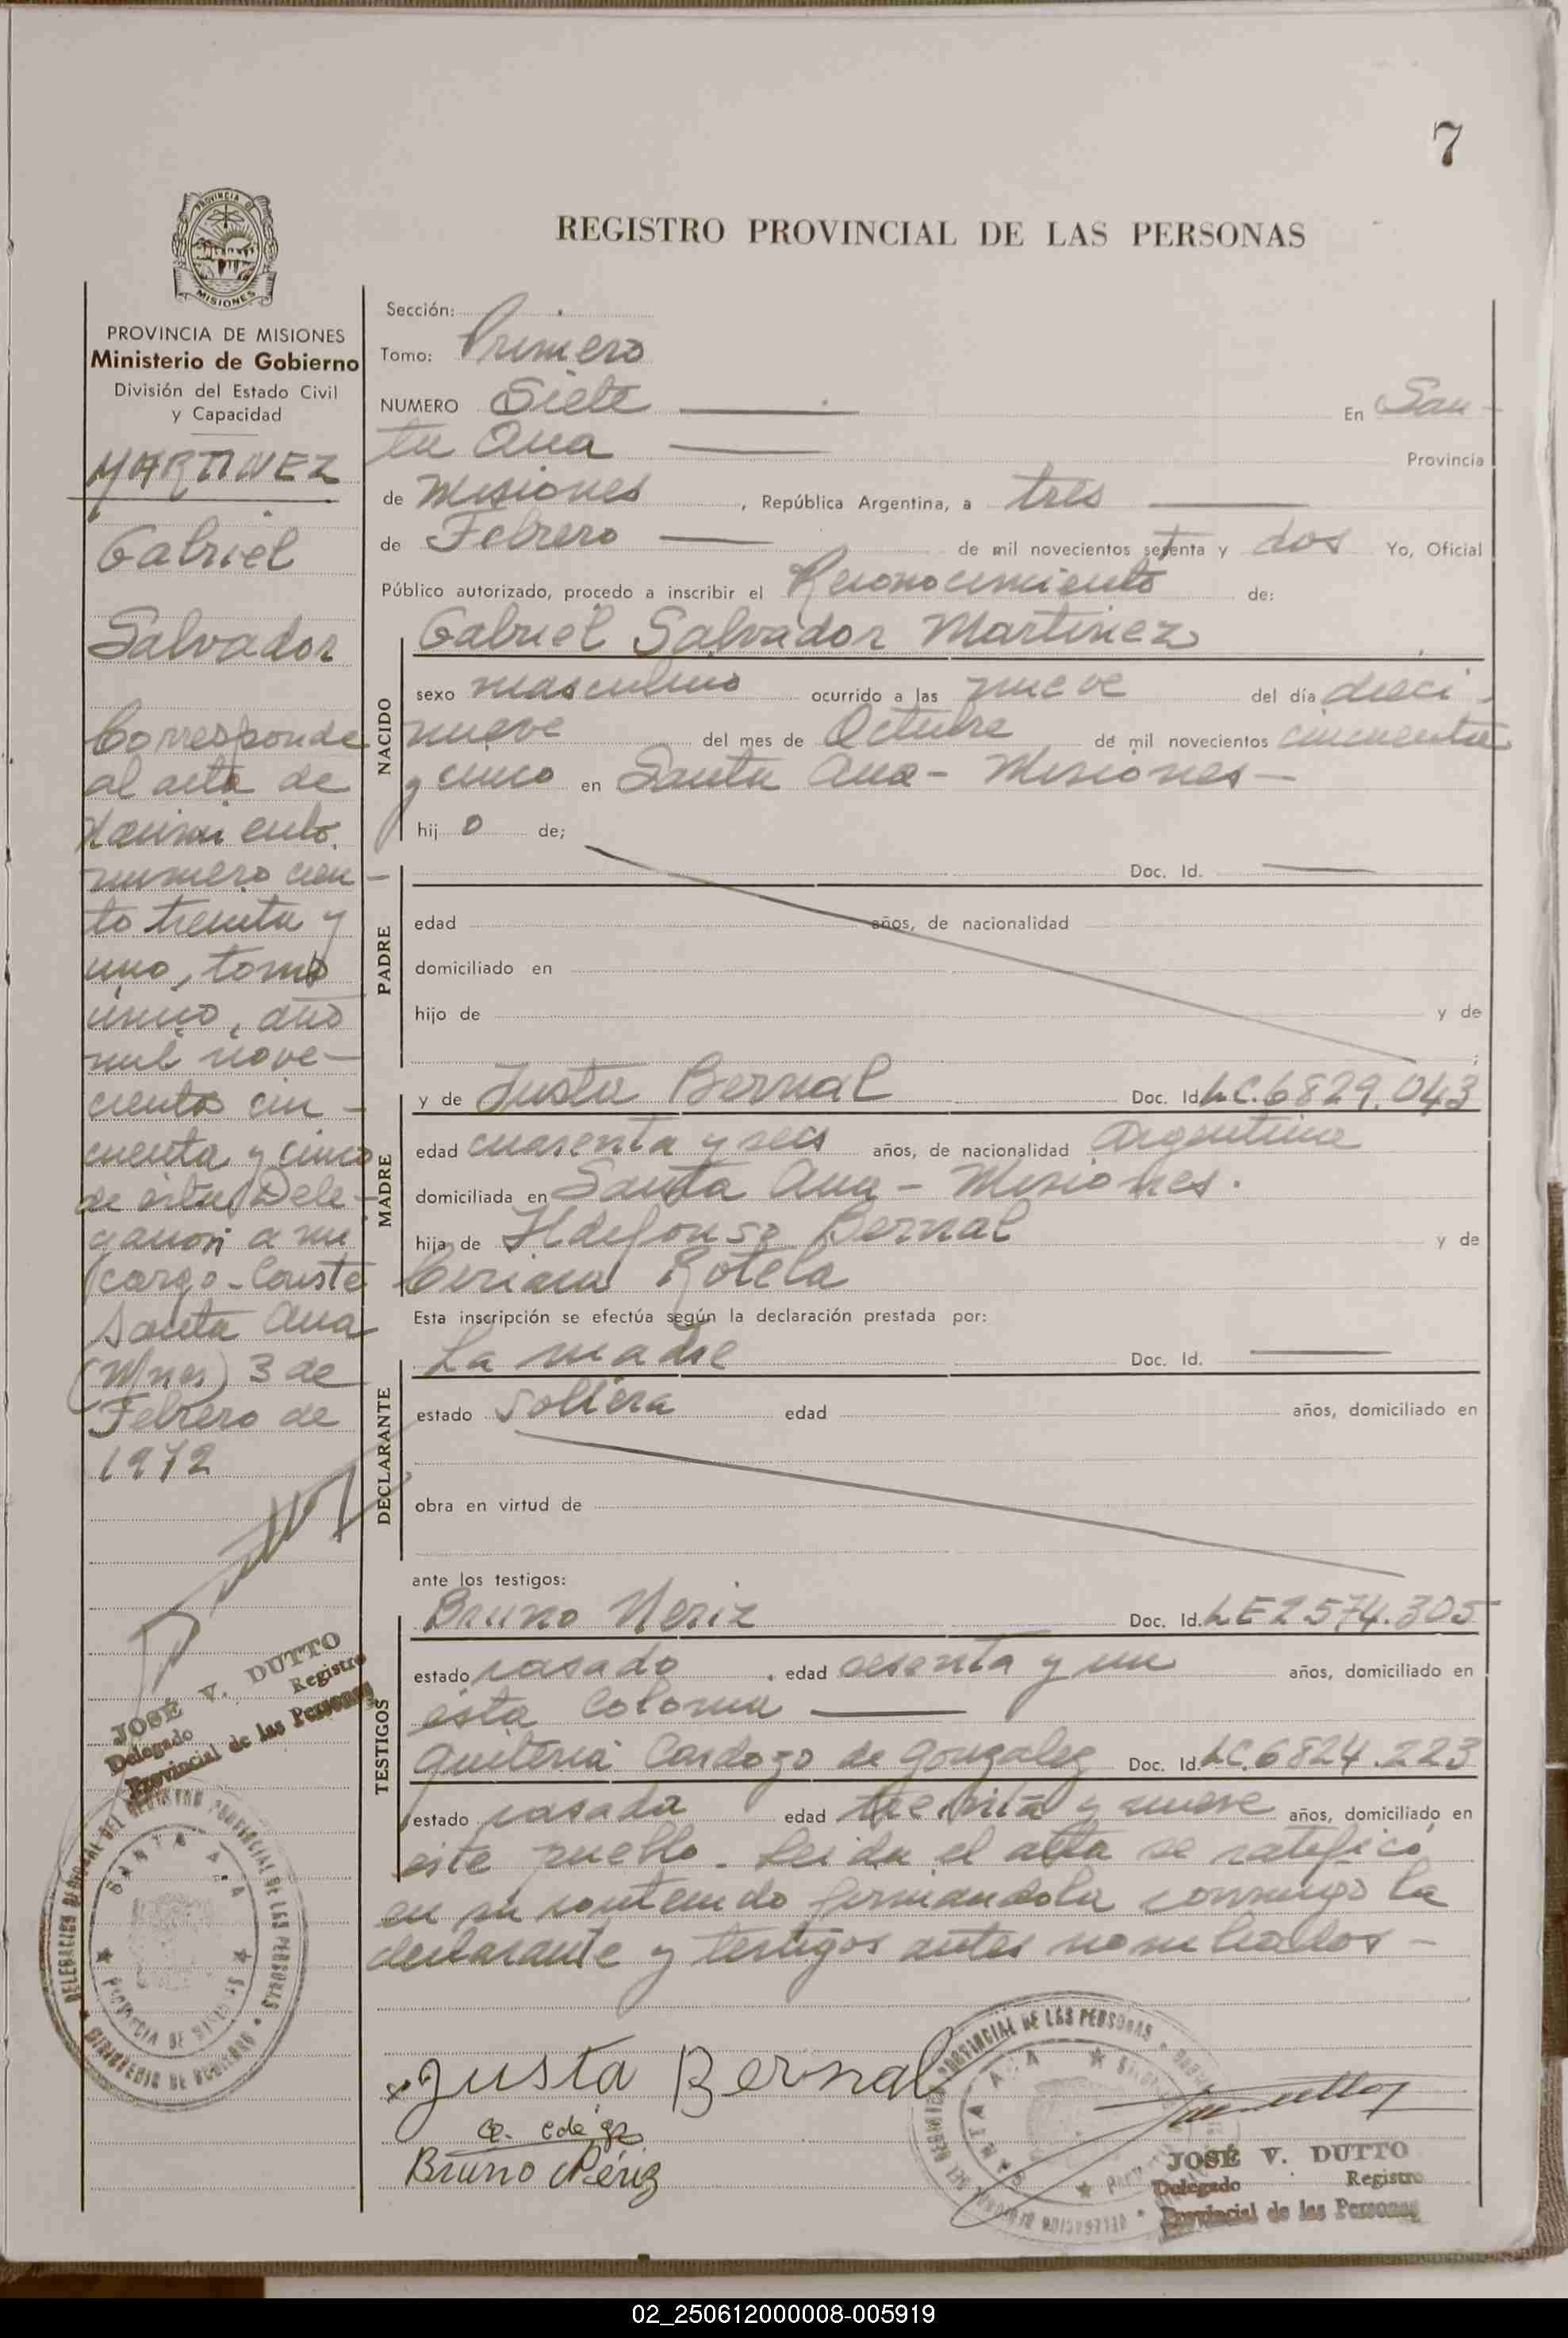 7
PROVINCIA DE MISIONES
PROVINCIA DE MISIONES
Ministerio de Gobierno
División del Estado Civil
y Capacidad
MARTINEZ
Gabriel
Salvador
Corresponde
al acta de
Nacimiento
numero cien-
to treinta y
uno, tomo
único, año
mil nove-
cientos cin-
cuenta y cinco
de esta Dele-
gación a mi
cargo - Conste
Santa Ana
(Mnes) 3 de
Febrero de
1972
JOSÉ V. DUTTO
Delegado Registro
Provincial de las Personas
DELEGACION DEL REGISTRO PROVINCIAL DE LAS PERSONAS
SANTA ANA
PROVINCIA DE MISIONES
MINISTERIO DE GOBIERNO
REGISTRO PROVINCIAL DE LAS PERSONAS
Sección:
Tomo: Primero
NUMERO Siete En San-
ta Ana Provincia
de Misiones, República Argentina, a tres
de Febrero de mil novecientos setenta y dos Yo, Oficial
Público autorizado, procedo a inscribir el Reconocimiento de:
NACIDO
Gabriel Salvador Martinez
sexo masculino ocurrido a las nueve del día dieci-
nueve del mes de Octubre de mil novecientos cincuenta
y cinco en Santa Ana - Misiones -
hijo de;
PADRE
Doc. Id.
edad años, de nacionalidad
domiciliado en
hijo de y de
;
MADRE
y de Justa Bernal Doc. Id. L.C. 6829.043
edad cuarenta y seis años, de nacionalidad Argentina
domiciliada en Santa Ana - Misiones.
hija de Ildefonso Bernal y de
Ciriaca Rotela
Esta inscripción se efectúa según la declaración prestada por:
DECLARANTE
La madre Doc. Id.
estado soltera edad años, domiciliado en
obra en virtud de
ante los testigos:
TESTIGOS
Bruno Neriz Doc. Id. LE 2574.305
estado casado. edad sesenta y un años, domiciliado en
esta Colonia
Quiteria Cardozo de Gonzalez Doc. Id. L.C. 6824.223
estado casada edad treinta y nueve años, domiciliado en
este pueblo. Leida el acta se ratificó
en su contenido firmandola conmigo la
declarante y testigos antes nombrados -
Justa Bernal
Bruno Nériz
PROVINCIAL DE LAS PERSONAS
SANTA ANA
JOSÉ V. DUTTO
Delegado Registro
Provincial de las Personas
02_250612000008-005919